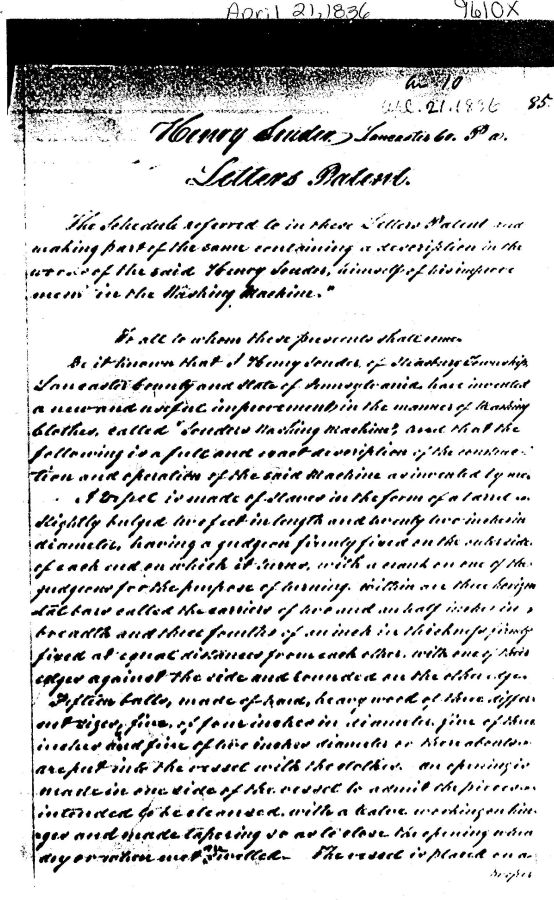 April 21, 1836 9610X
Apl. 21. 1836 85
Henry Souder, Lancaster Co. Pa.
Letters Patent.
The Schedule referred to in these Letters Patent and
making part of the same containing a description in the
words of the said Henry Souder, himself of his improve
ment in the Washing Machine."
To all to whom these presents shall come.
Be it known that I Henry Souder, of Strasburg Township,
Lancaster County and State of Pennsylvania have invented
a new and useful improvement in the manner of Washing
Clothes, called "Souders Washing Machine", and that the
following is a full and exact description of the construc
tion and operation of the said Machine as invented by me.
A Vessel is made of Staves in the form of a barrel
slightly bulged two feet in length and twenty two inches in
diameter, having a gudgeon firmly fixed on the outside
of each end on which it turns, with a crank on one of the
gudgeons for the purpose of turning. Within are three horizon
tal bars called the carriers of two and an half inches in
breadth and three fourths of an inch in thickness, firmly
fixed at equal distances from each other, with one of their
edges against the side and rounded on the other edge.
Fifteen balls, made of hard, heavy wood of three differ
ent sizes, five, of four inches in diameter, five of three
inches and five of two inches diameter or thereabouts
are put into the vessel with the clothes. an opening is
made in one side of the vessel to admit the pieces
intended to be cleansed, with a valve working on hin
ges and made tapering so as to close the opening when
dry or when wet & swelled. The vessel is placed on a